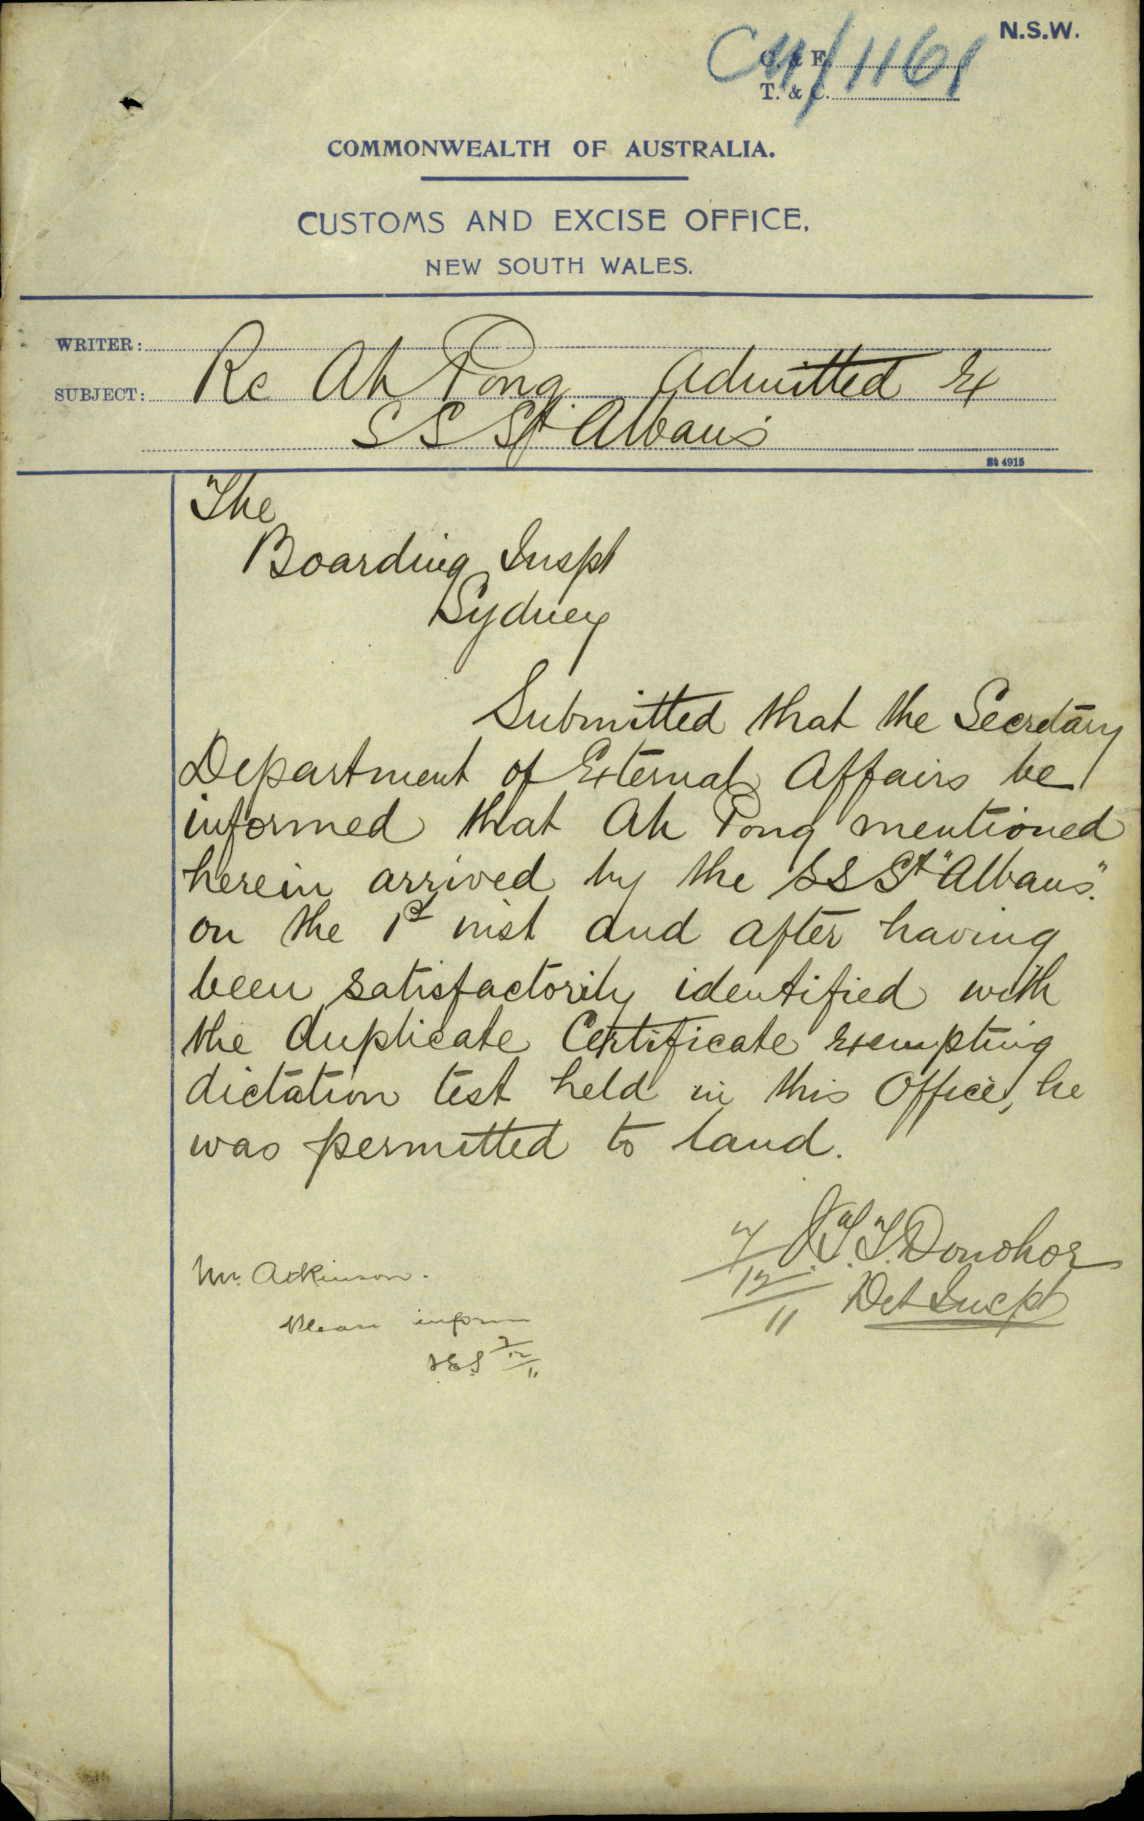 N.S.W.
C11/1161
C. & E.
T. & C.
COMMONWEALTH OF AUSTRALIA.
CUSTOMS AND EXCISE OFFICE,
NEW SOUTH WALES.
WRITER:
SUBJECT: Re Ah Pong admitted Ex
SS St Albans
St 4915
The
Boarding Inspt
Sydney
Submitted that the Secretary
Department of External Affairs be
informed that Ah Pong mentioned
herein arrived by the SS St "Albans".
on the 1st inst and after having
been satisfactorily identified with
the duplicate Certificate exempting
dictation test held in this Office, he
was permitted to land.
J.T.T. Donohoe
7/12/11 Det Inspt
Mr. Atkinson.
Please inform
7/12/11